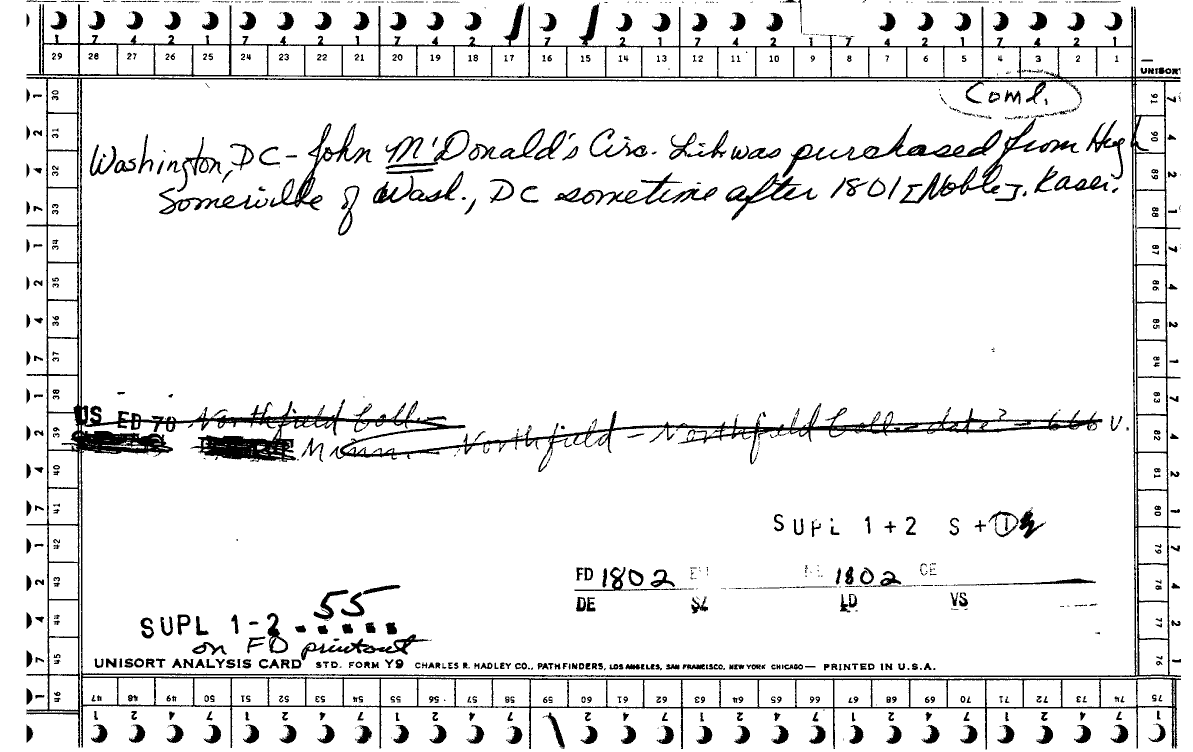 1 7 4 2 1 7 4 2 1 7 4 2 7 2 1 7 4 2 1 7 4 2 1 7 4 2 1
29 28 27 26 25 24 23 22 21 20 19 18 17 16 15 14 13 12 11 10 9 8 7 6 5 4 3 2 1
UNISORT
Coml.
Washington, DC - John M'Donald's Circ. Lib was purchased from Hugh
Somerville of Wash., DC sometime after 1801 [Noble]. Kaser.
US ED 70 Northfield Coll
Minn. - Northfield - Northfield Coll - date? - 666 V.
SUPL 1+2 S+1
FD 1802 EM 1802 CE
DE SZ LD VS
SUPL 1-2 55
on FD printout
UNISORT ANALYSIS CARD STD. FORM Y9 CHARLES R. HADLEY CO., PATHFINDERS, LOS ANGELES, SAN FRANCISCO, NEW YORK CHICAGO — PRINTED IN U.S.A.
30 31 32 33 34 35 36 37 38 39 40 41 42 43 44 45 46
91 90 89 88 87 86 85 84 83 82 81 80 79 78 77 76 75
47 48 49 50 51 52 53 54 55 56 57 58 59 60 61 62 63 64 65 66 67 68 69 70 71 72 73 74